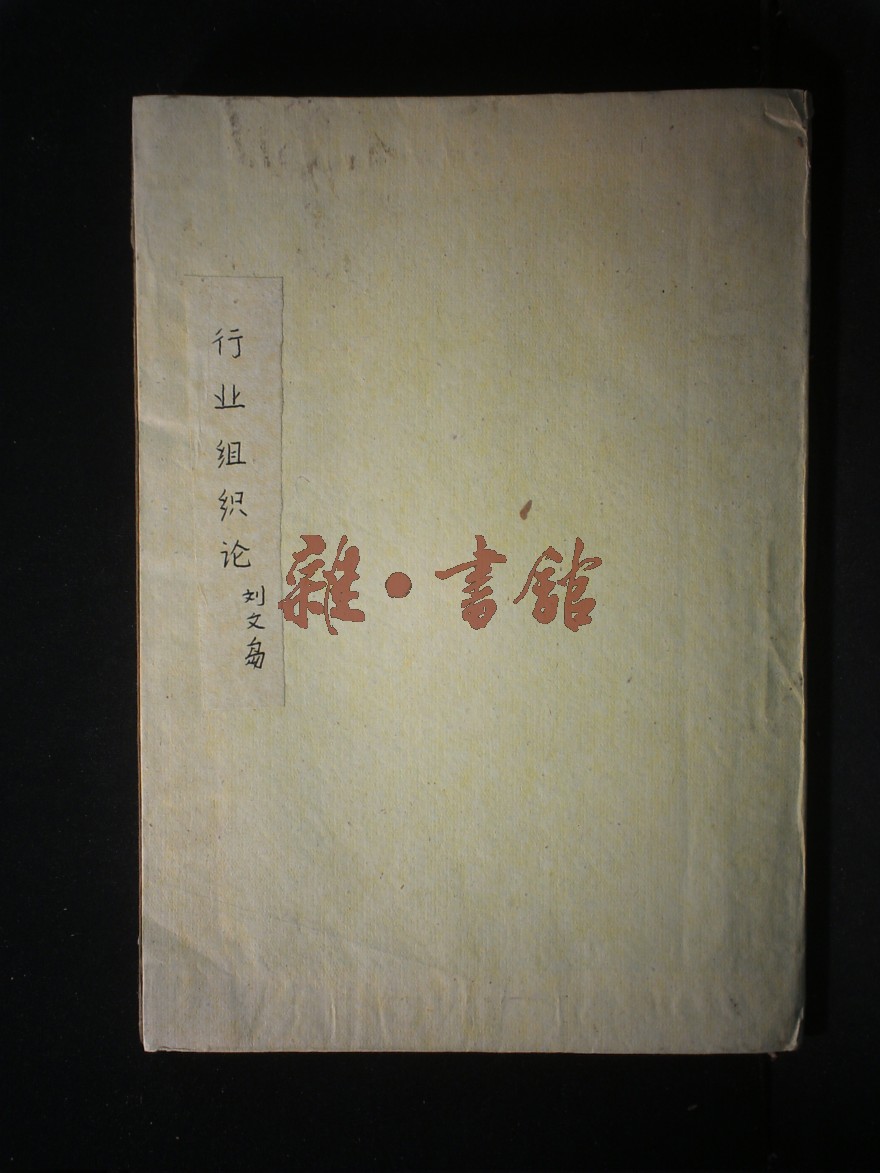 行业组织论
刘文岛
雜·書館